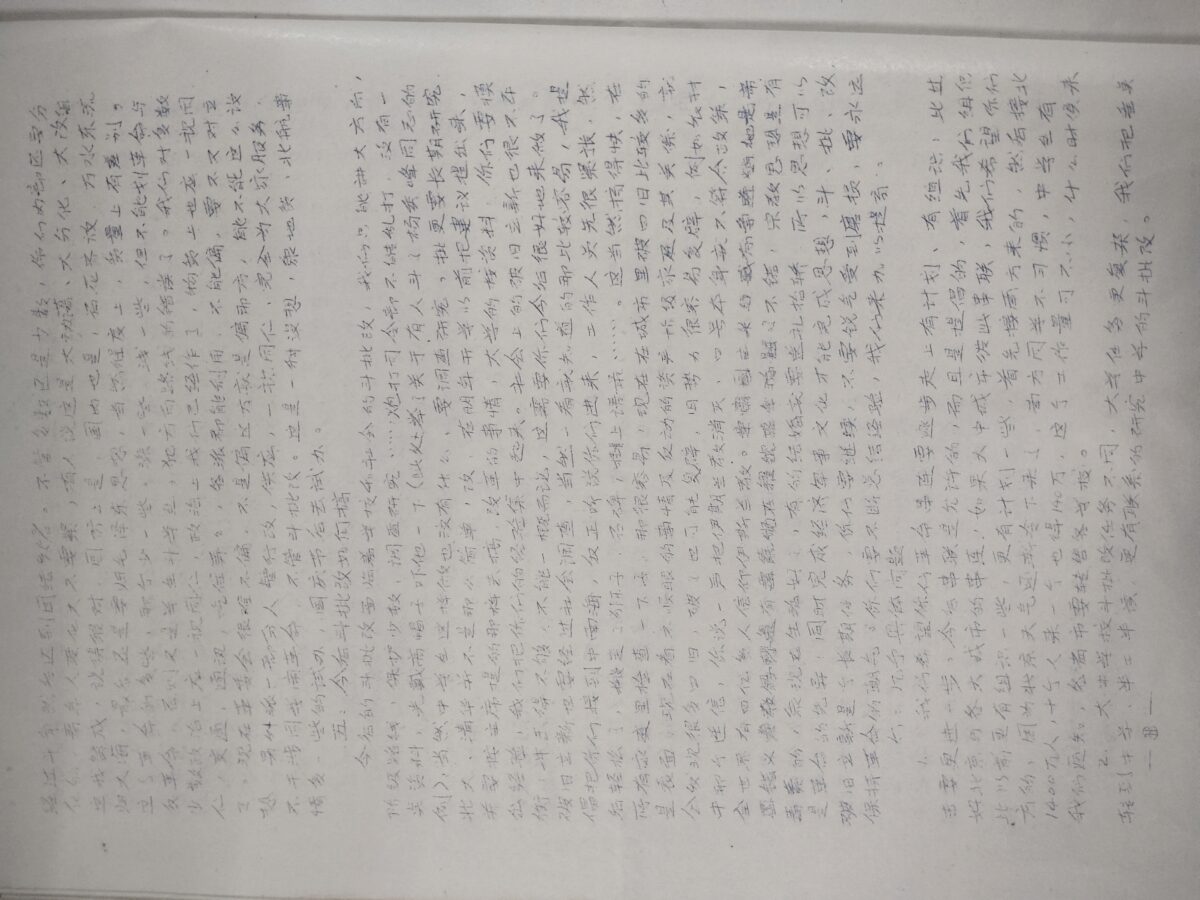 经过斗争到后达到团结95%。不管多数还是少数，你们内部还要分
化的，看来人变化大不要紧，有人说这是大动荡、大分化、大改组
这我赞成，说得很对，国际上是，国内也是，百花齐放，万水东流
归大海，最后还是要归毛泽东思想，当然程度上，质量上有差别。
这个革命的多些，那个少一些，深一些，浅一些，但不能划革命与
反革命，否则又是学生斗学生，犯方向路线的错误了。我们对多数
少数政治上应一视同仁，政治上我们已经作了，物质上也应一视同
仁，交通，通讯，吃住等等，各派都能利用，不能偏，要不又对立
了。现在要革会很难不偏，不是偏这方就是偏那方，能不能这么设
想，另外派一部分人管行政，供应，一视同仁，完全为大家服务，
不干涉同学闹革命，不管斗批改。这是一种设想，象地质、北航事
情多一些的试办，国庆节后去试办。
五：今后斗批改如何搞
今后的斗批改面临着学校和社会的斗批改，我们只能讲大方向，
阶级路线，保护少数，调查研究……炮打司令部不能乱打，没有一
点资料，先戴高帽子吓他一下（此处举了关于有人斗了杨秀峰同志的
例），当然中学生这样做也没有什么，要调查研究。批更要长期研究
北大、清华并不是那么简单，改，在明年开学以前把建议提出来，
并要按主席提的那样去搞，改革的事情，大学的按资料，你们要摸
出经验，我们把你们的经验集中起来。社会上的破旧立新也很不平
衡，冲击得不够，不能一概而论，这需要你们今后很好地来做了。
破旧立新也要经过社会调查，当然一看就知道的那比较容易，我提
倡把你们接到中南海，反正欢迎你们进来，工作人员先很紧张，然
后轻松了，搬走了狮子，石碑，糊上语录……。这当然搞得快，在
所有家庭里检查一下子，那很容易，现在在城市里破四旧比较多的
是表面，现在看不顺眼的事情及反动的资产阶级家庭及其关系，就
会发现很多四旧，破了也可能复辟，旧势力很容易复辟，例如农村
中那个迷信，你说一声把伊斯兰教消灭，口号本身就不符合政策，
全世界有四亿多人信仰伊斯兰教。
毒素的，表现在生活习惯，有的结婚就要送礼抬轿，所以思想可以
是革命的先导，同时完成经济军事文化才能完成思想，斗、批、改，
破旧立新是个长期任务，你们要继续，不要锐气受到磨损，要永远
保持革命的朝气。你们要不断总结经验，我们来加以提高。
六：几个具体问题
1. 我们希望你们革命串连要逐步走上有计划、有组织，比过
去要更进一步。今后串联是允许的，而且是提倡的，首先我们组织
好北京与各大城市的串连，如果大中城市彼此串联，我们希望你们
比以前更有组织一些，更有计划一些，首先接南方来的，然后接北
方的，因为北京天气逐渐冷下来了，南方同学不习惯，中学生有
1400万人，十个人来一个也得140万，这个工作量可不小，什么时侯来
我们通知，各省市要转告各学校。
2. 大中学校斗批改任务不同，大学任务更复杂，我们把重点
转到中学、半工半读，更有联系的研究中学的斗批改。